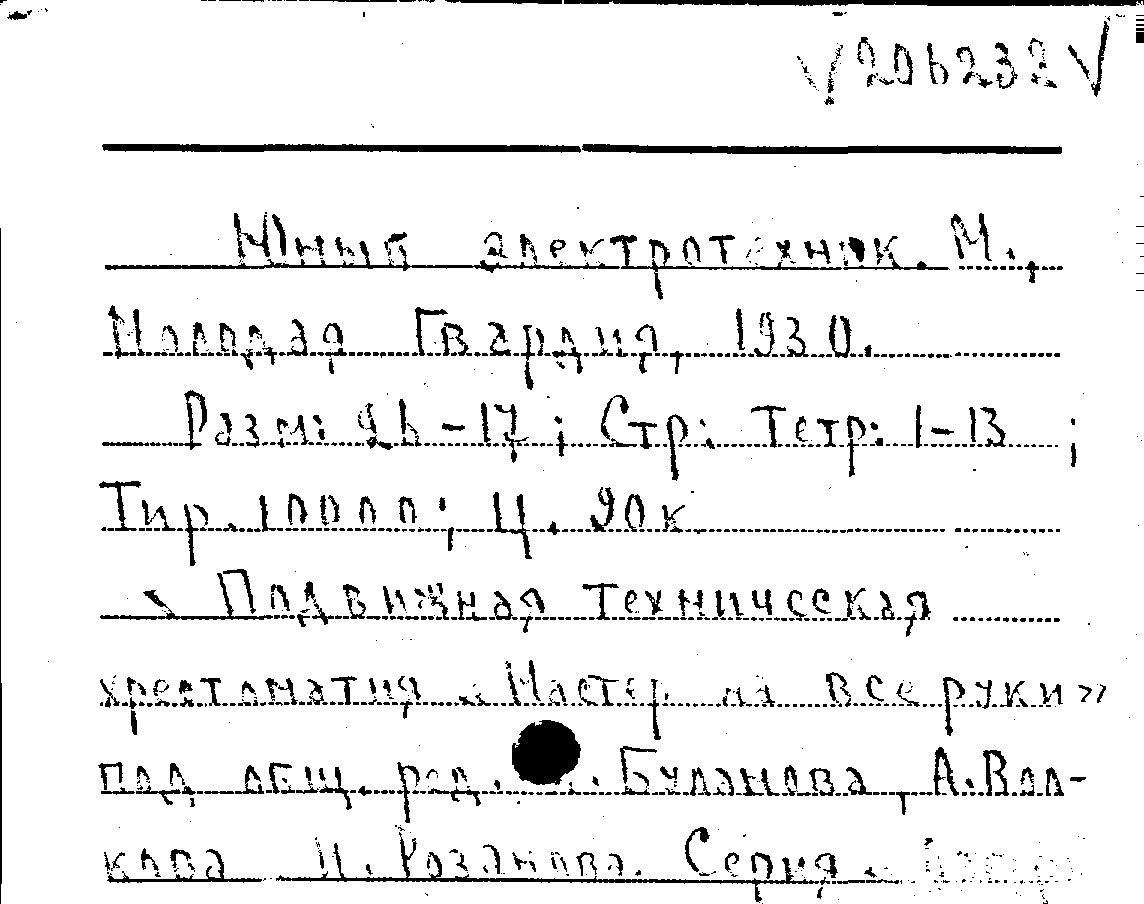 √206232√
Юный электротехник. М.,
Молодая Гвардия, 1930.
Разм: 26-17; Стр: Тетр: 1-13 ;
Тир. 10000; Ц. 90к
Подвижная техническая
хрестоматия «Мастер на все руки»
под общ. ред. . Буланова, А.Вол-
кова И. Розанова. Серия «